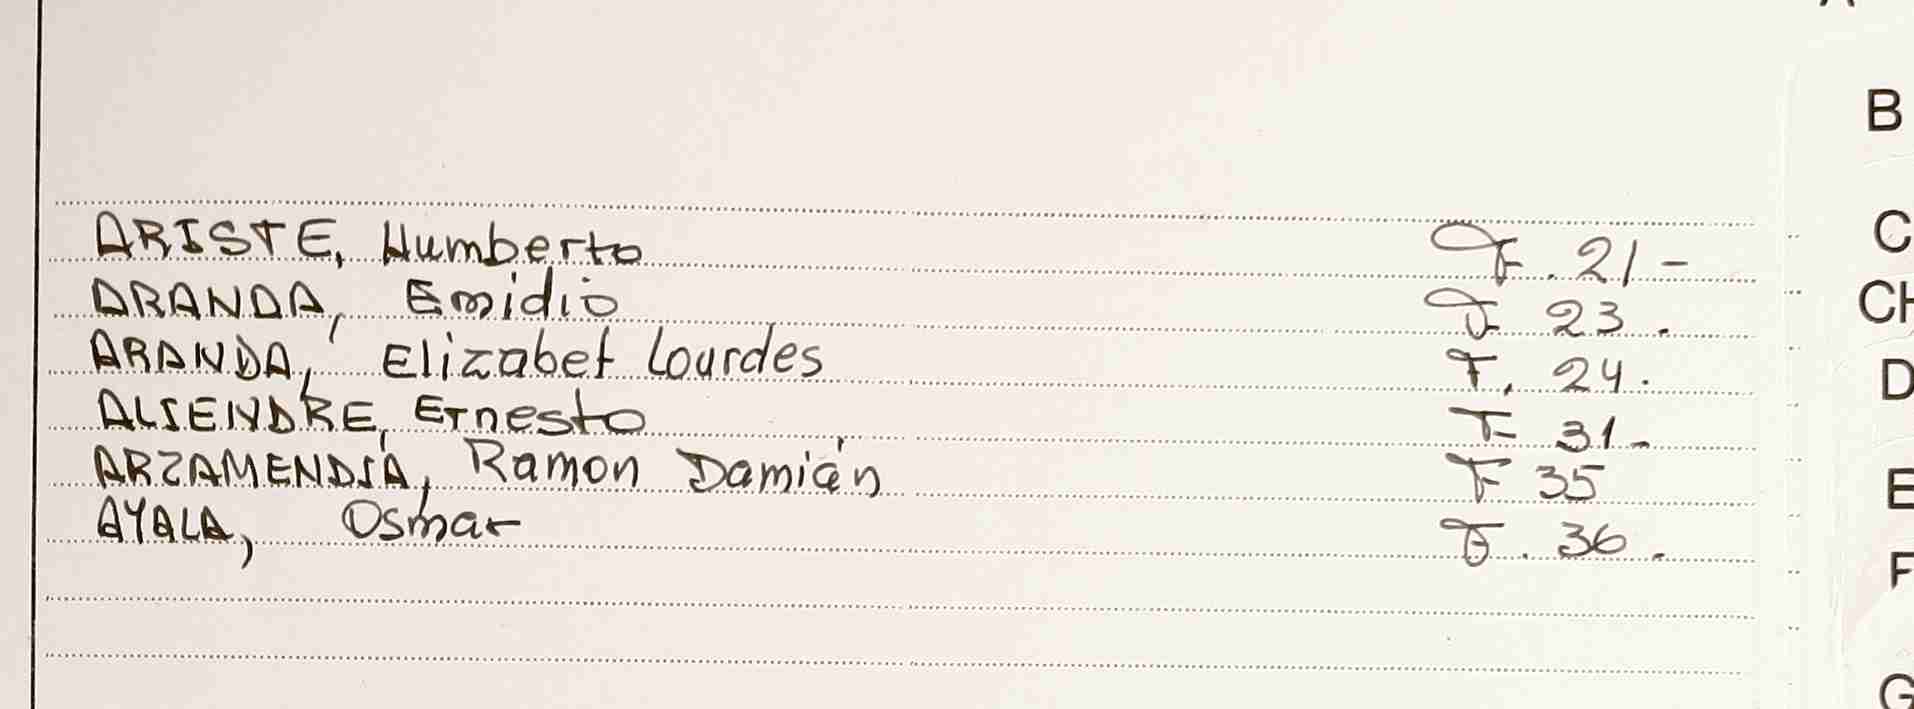 B
ARISTE, Humberto F. 21-
C
ARANDA, Emidio F 23.
CH
ARANDA, Elizabet Lourdes F. 24.
D
ALSENDRE, Ernesto F 31-
ARZAMENDIA, Ramon Damián F 35
E
AYALA, Osmar F. 36.
F
G